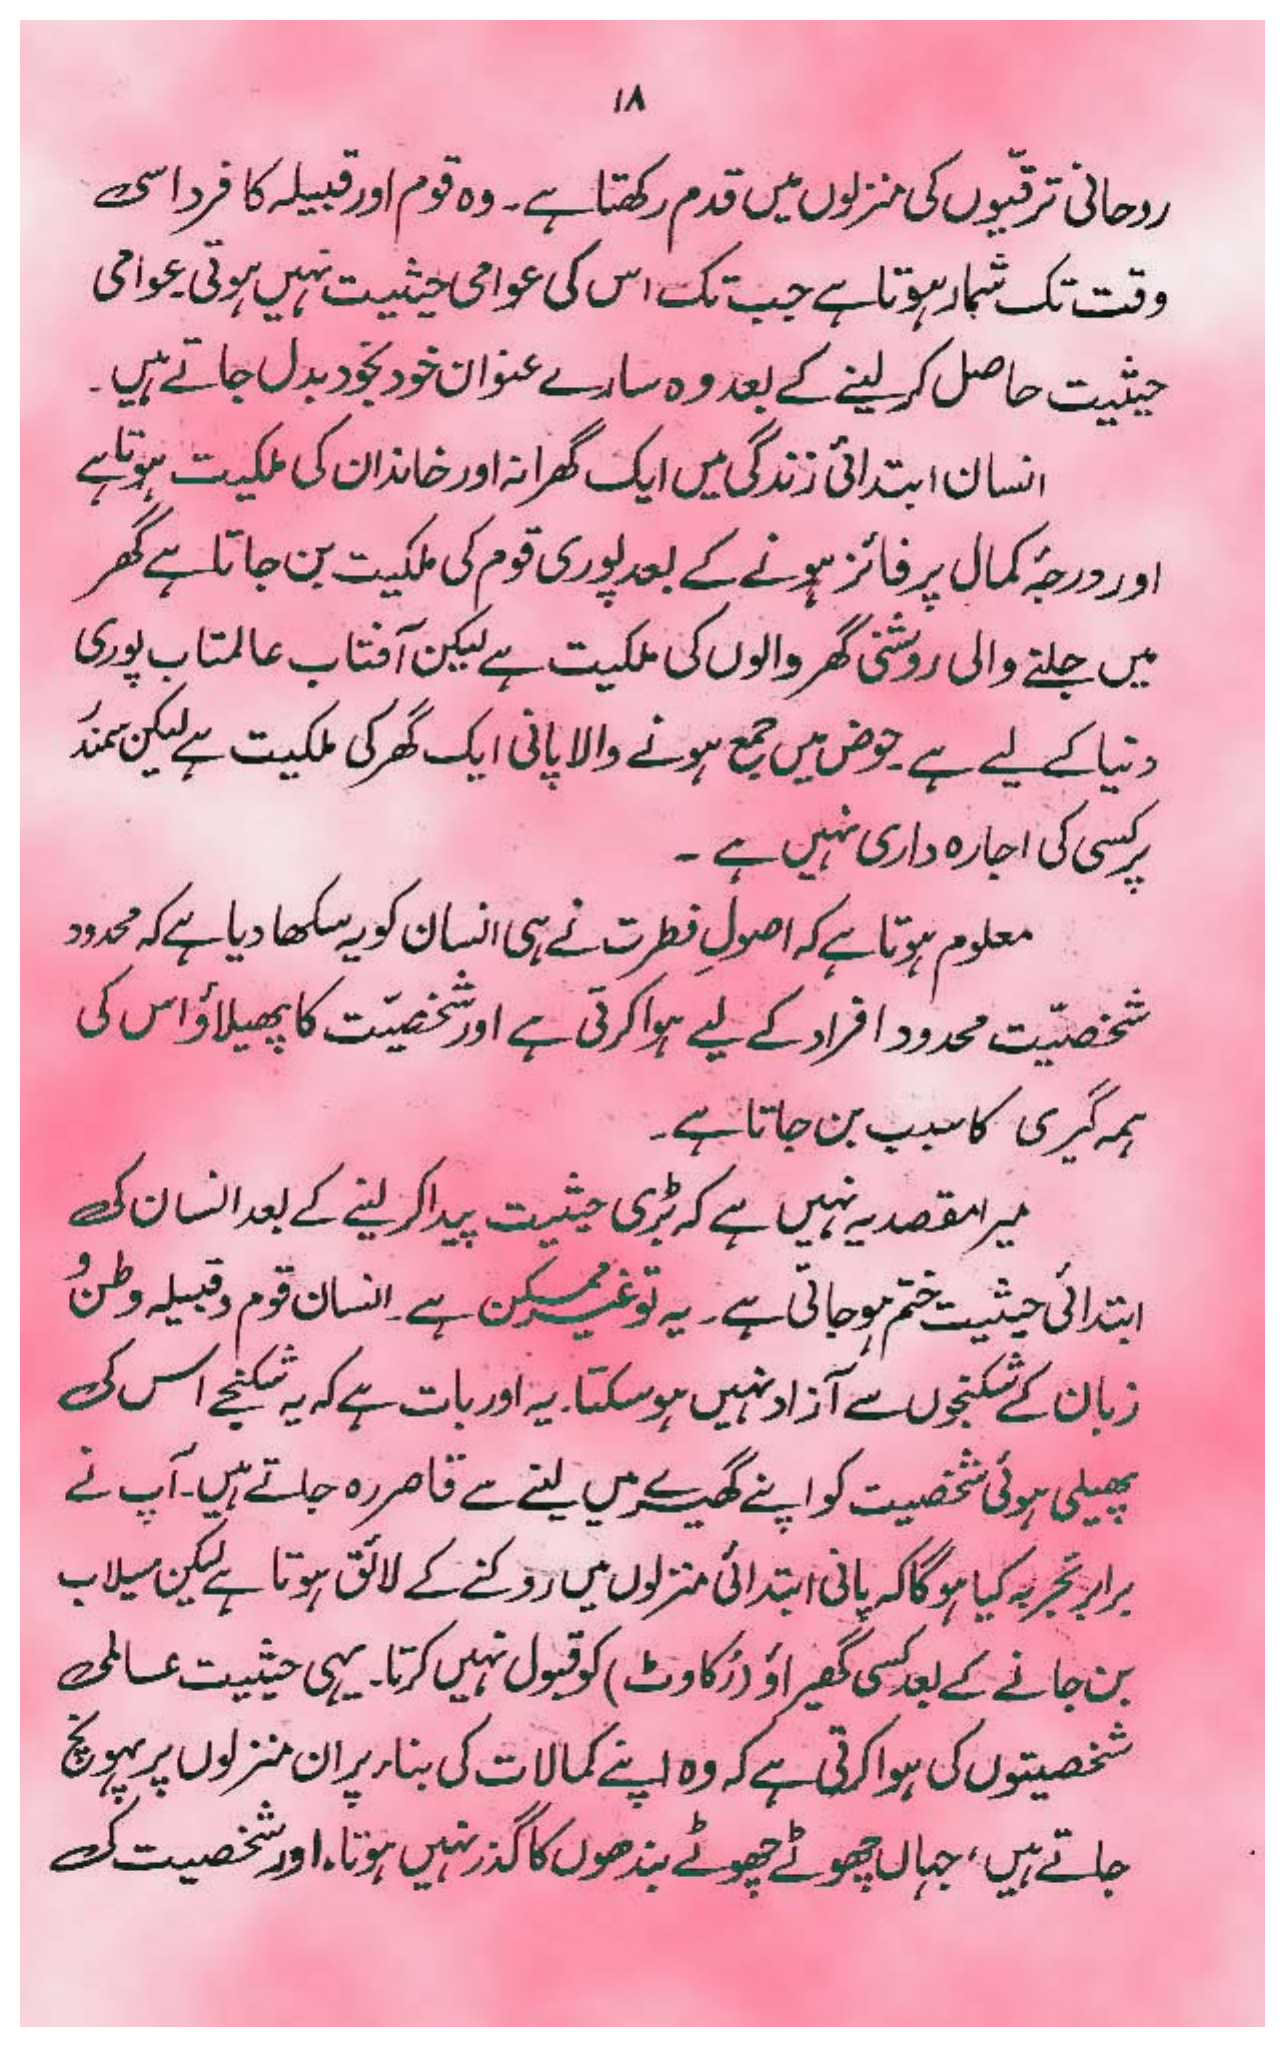 ۱۸
روحانی ترقیّوں کی منزلوں میں قدم رکھتا ہے۔ وہ قوم اور قبیلہ کا فرد اسی
وقت تک شمار ہوتا ہے جب تک اس کی عوامی حیثیت نہیں ہوتی۔ عوامی
حیثیت حاصل کر لینے کے بعد وہ سارے عنوان خود بخود بدل جاتے ہیں۔
انسان ابتدائی زندگی میں ایک گھرانہ اور خاندان کی ملکیت ہوتا ہے
اور درجۂ کمال پر فائز ہونے کے بعد پوری قوم کی ملکیت بن جاتا ہے گھر
میں جلنے والی روشنی گھر والوں کی ملکیت ہے لیکن آفتاب عالمتاب پوری
دنیا کے لیے ہے۔ حوض میں جمع ہونے والا پانی ایک گھر کی ملکیت ہے لیکن سمندر
پر کسی کی اجارہ داری نہیں ہے ۔
معلوم ہوتا ہے کہ اصولِ فطرت نے ہی انسان کو یہ سکھا دیا ہے کہ محدود
شخصیّت محدود افراد کے لیے ہوا کرتی ہے اور شخصیّت کا پھیلاؤ اس کی
ہمہ گیری کا سبب بن جاتا ہے۔
میرا مقصد یہ نہیں ہے کہ بڑی حیثیت پیدا کر لینے کے بعد انسان کی
ابتدائی حیثیت ختم ہو جاتی ہے۔ یہ تو غیر ممکن ہے۔ انسان قوم و قبیلہ وطن و
زبان کے شکنجوں سے آزاد نہیں ہو سکتا۔ یہ اور بات ہے کہ یہ شکنجے اس کی
پھیلی ہوئی شخصیت کو اپنے گھیرے میں لینے سے قاصر رہ جاتے ہیں۔ آپ نے
برابر تجربہ کیا ہوگا کہ پانی ابتدائی منزلوں میں روکنے کے لائق ہوتا ہے لیکن سیلاب
بن جانے کے بعد کسی گھیراؤ (رُکاوٹ) کو قبول نہیں کرتا۔ یہی حیثیت عالمی
شخصیتوں کی ہوا کرتی ہے کہ وہ اپنے کمالات کی بناء پر ان منزلوں پر پہونچ
جاتے ہیں، جہاں چھوٹے چھوٹے بندھوں کا گذر نہیں ہوتا، اور شخصیت کی